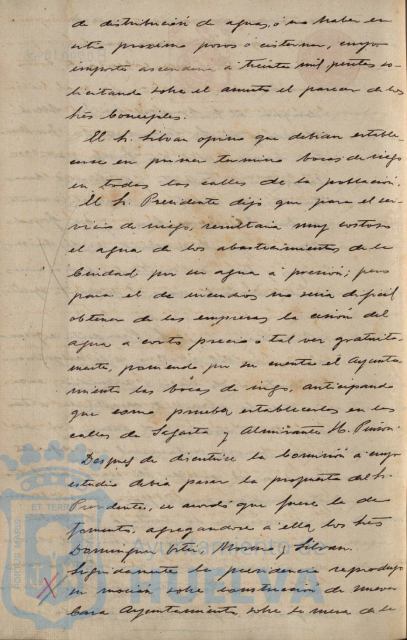 de distribución de aguas, ó no haber en
sitio próximo pozos ó cisternas, cuyo
importe ascenderia á treinta mil pesetas so-
licitando sobre el asunto el parecer de los
Sres Concejales.
El Sr. Silvan opina que debian estable-
cerse en primer termino bocas de riego
en todas las calles de la población.
El Sr. Presidente dijo que para el ser-
vicio de riego, resultaria muy costoso
el agua de los abastecimientos de la
Ciudad por ser agua á presión; pero
para el de incendios no seria dificil
obtener de las empresas la cesión del
agua á corto precio ó tal vez gratuita-
mente, poniendo por su cuenta el Ayunta-
miento las bocas de riego, anticipando
que como prueba, establecerlas en las
calles de Sagasta y Almirante H. Pinzon.
Despues de discutirse la Comisión á cuyo
estudio debia pasar la propuesta del Sr.
Presidente, se acordó que fuese la de
fomento, agregandose á ella los Sres
Dominguez Ortiz, Moreno y Silvan.
Seguidamente la presidencia reprodujo
su moción sobre construcción de nueva
Casa Ayuntamiento sobre la mesa de la
ET TERR
PORTUS MARIS
Ayuntamiento de
HUELVA